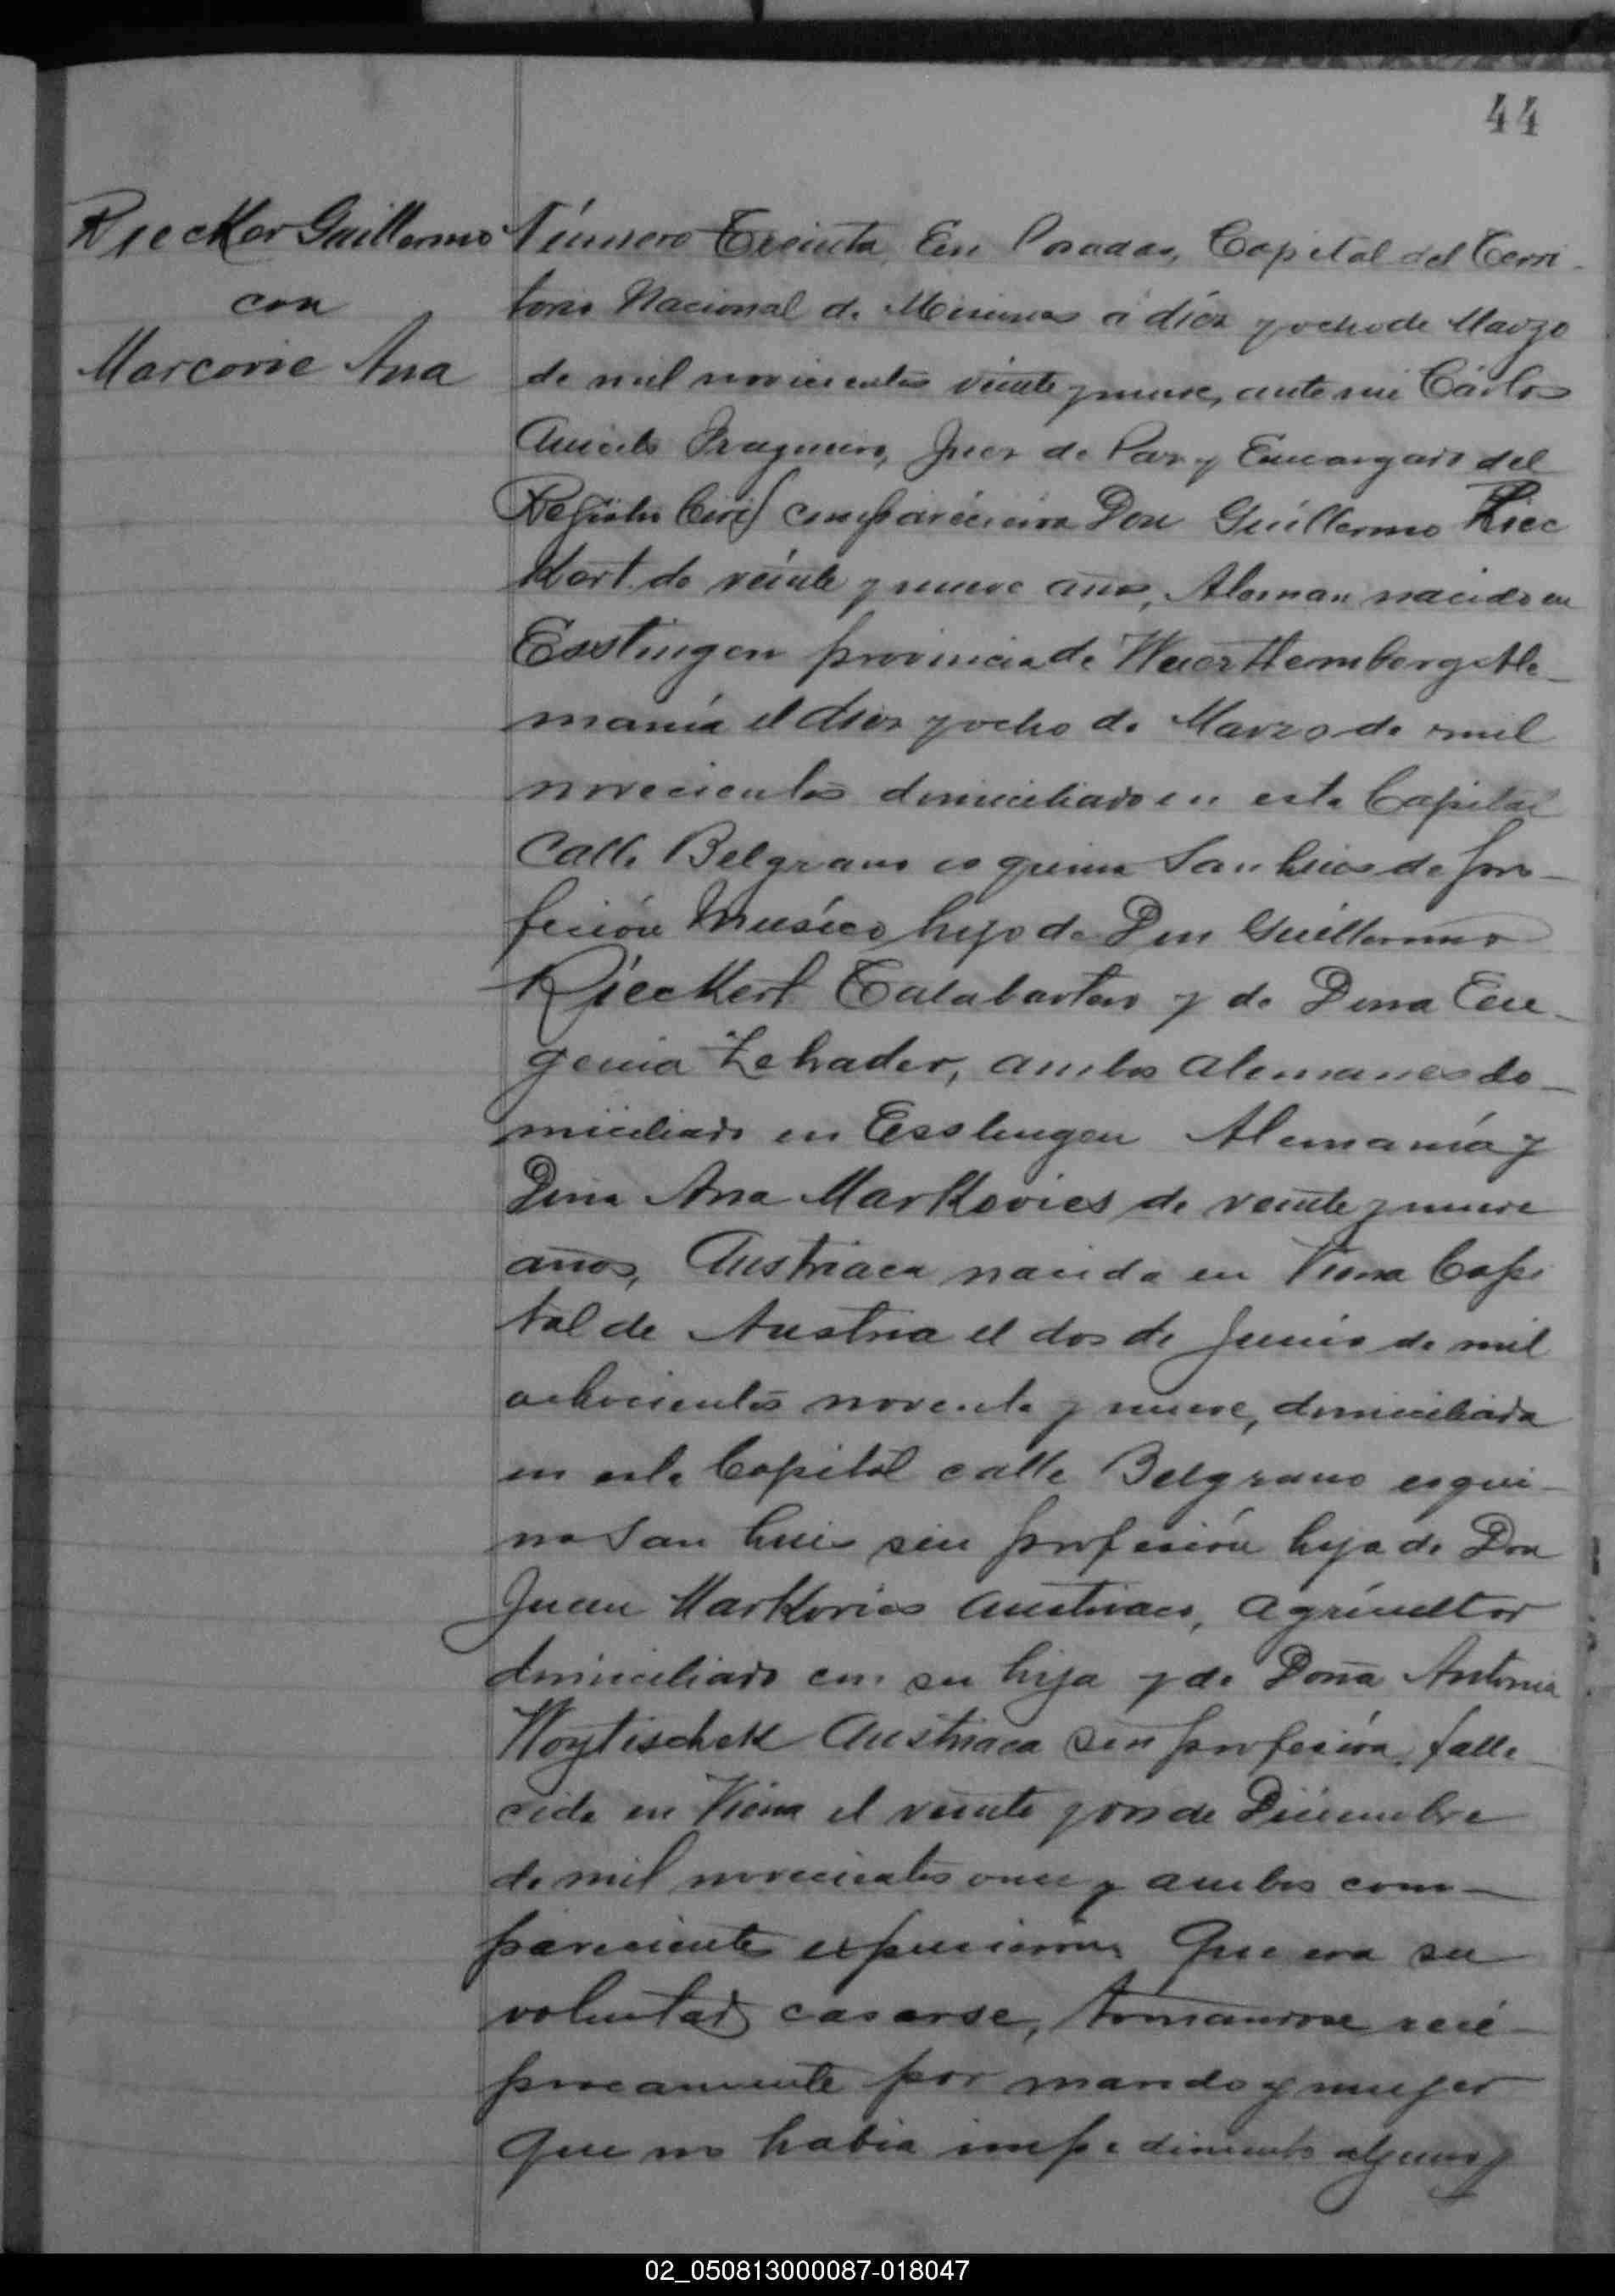 44
Riecker Guillermo
con
Marcovie Ana
Número Treinta En Posadas, Capital del Terri-
torio Nacional de Misiones á diéz y ocho de Marzo
de mil novecientos veinte y nueve, ante mi Cárlos
Aniceto Juez de Paz y Encargado del
Registro Civil comparecieron Don Guillermo Riec
Kert de veinte y nueve años, Aleman nacido en
Esstingen provincia de Wuerttemberg Ale-
mania el diez y ocho de Marzo de mil
novecientos domiciliado en esta Capital
Calle Belgrano esquina San Luis de pro-
fesión Musico hijo de Don Guillermo
Rieckert Talabartero y de Dona Eu-
genia Zehader, ambos alemanes do-
miciliado en Esslingen Alemanía y
Dona Ana Markovies de veinte y nueve
años, Austriaca nacida en Viena Capi
tal de Austria el dos de Junio de mil
ochocientos noventa y nueve, domiciliada
en esta Capital calle Belgrano esqui-
na San Luis sin profesión hija de Don
Juan Markovies Austriaco, agricultor
domiciliado con su hija y de Doña Antonia
Woytischek Austriaca sin profesión, falle
cida en Viena el veinte y de Diciembre
de mil novecientos once y ambos com-
parecientes expusieron Que era su
voluntad casarse, tomandose recí-
procamente por marido y mujer
Que no habia impedimento alguno y
02_050813000087-018047